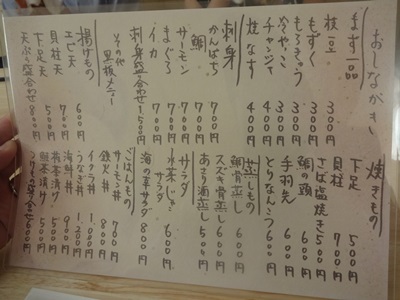 おしながき
まず一品
枝豆 300円
もずく 300円
もろきゅう 300円
冷ややっこ 300円
チャンジャ 400円
焼なす 400円
刺身
かんぱち 700円
鯛 700円
サーモン 700円
まぐろ 700円
イカ 700円
刺身盛合わせ 1,500円
その他
黒板メニュー
揚げもの
エビ天 600円
貝柱天 700円
下足天 500円
天ぷら盛合わせ 800円
焼きもの
下足 500円
貝柱 700円
さば塩焼き 500円
鯛の頭 600円
手羽先 600円
とりなんこつ 600円
蒸しもの
鯛骨蒸し 600円
スズキ骨蒸し 600円
あさり酒蒸し 500円
サラダ
水菜じゃこサラダ 600円
海の幸サラダ 800円
ごはんもの
サーモン丼 700円
鉄火丼 800円
イクラ丼 1,000円
うなぎ丼 1,200円
海鮮丼 900円
茶漬け 500円
つけもの盛合せ 600円